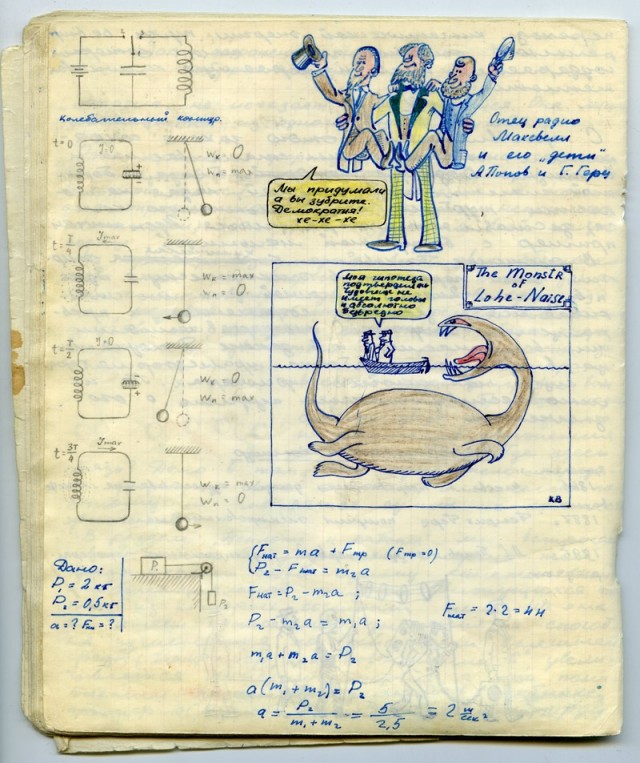 Колебательный контур.
t=0
J=0
Wк = 0
Wп = max
Jmax
Wк = max
Wп = 0
t=T/2
J=0
Wк = 0
Wп = max
t=3T/4
Jmax
Wк = max
Wп = 0
Отец радио
Максвелл
и его „дети"
А.Попов и Г. Герц
Мы придумали
а вы зубрите.
Демократия!
хе-хе-хе
The Monstr
of
Lohe-Naise
Моя гипотеза
подтвердилась
чудовище не
имеет головы
и абсолютно
безвредно
КВ
Дано:
P₁ = 2 кг
P₂ = 0,5 кг
a = ? Fнат = ?
P₁
P₂
Fнат = ma + Fтр (Fтр=0)
P₂ - Fнат = m₂a
Fнат = P₂ - m₂a ;
P₂ - m₂a = m₁a ;
m₁a + m₂a = P₂
a(m₁ + m₂) = P₂
a = P₂/(m₁+m₂) = 5/2,5 = 2 м/сек²
Fнат = 2·2 = 4н